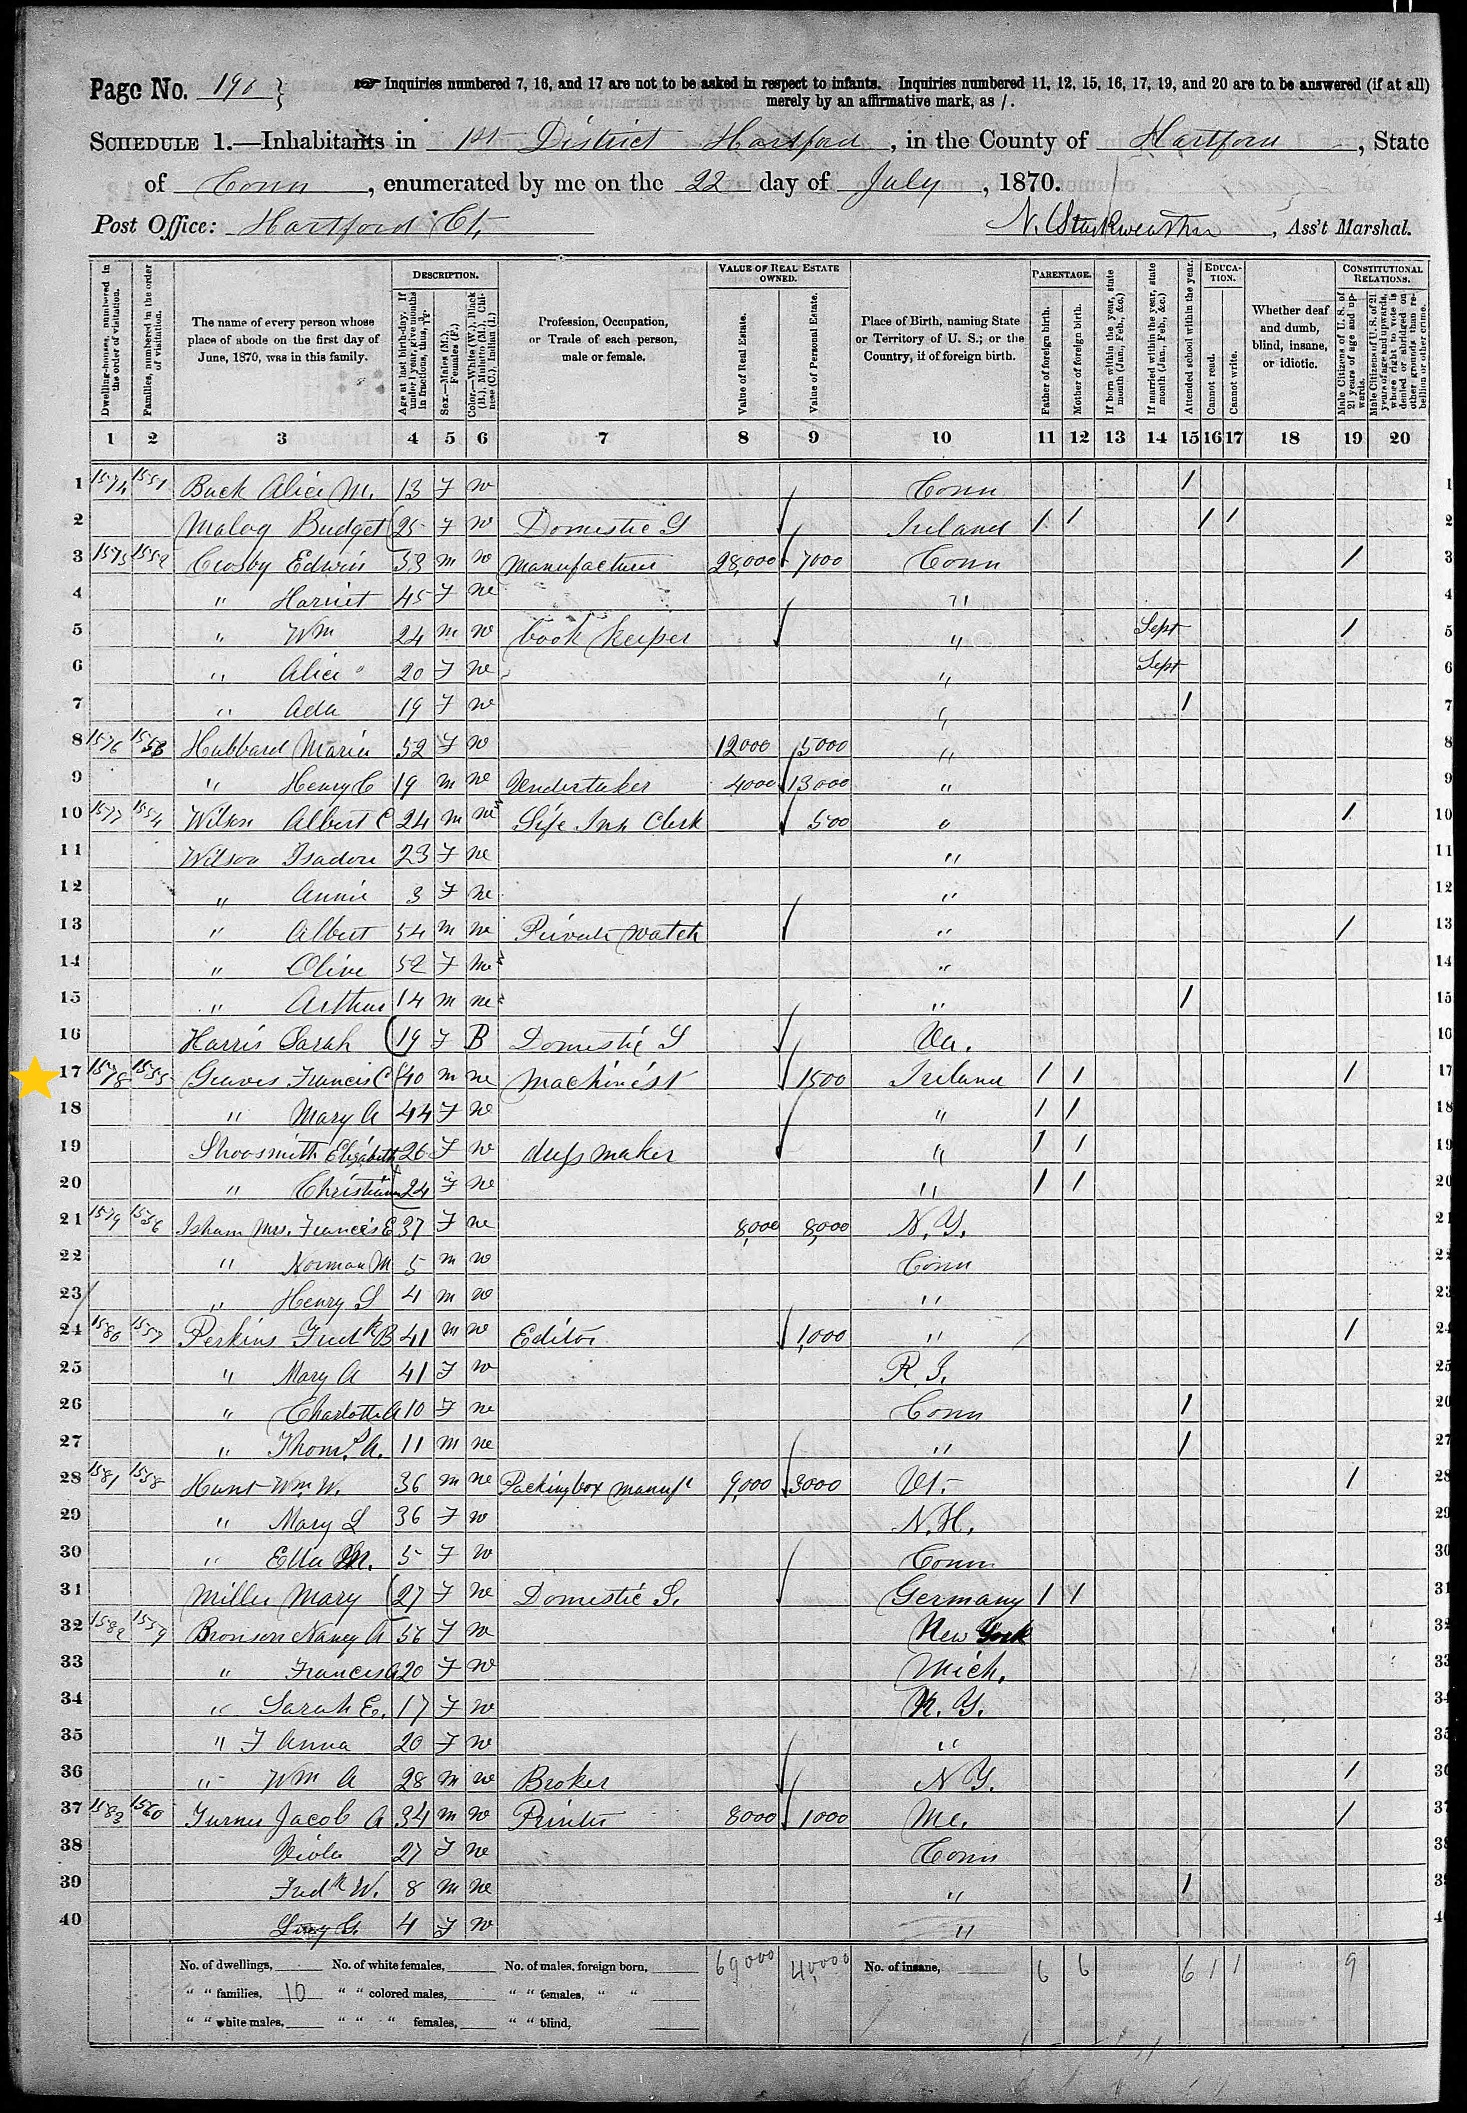 Page No. 190
Inquiries numbered 7, 16, and 17 are not to be asked in respect to infants. Inquiries numbered 11, 12, 15, 16, 17, 19, and 20 are to be answered (if at all)
merely by an affirmative mark, as /.
SCHEDULE 1.—Inhabitants in 1st District Hartford, in the County of Hartford, State
of Conn, enumerated by me on the 22 day of July, 1870.
Post Office: Hartford Ct, N. Starkweather, Ass't Marshal.
Dwelling-houses, numbered in the order of visitation.
Families, numbered in the order of visitation.
The name of every person whose place of abode on the first day of June, 1870, was in this family.
DESCRIPTION.
Age at last birth-day. If under 1 year, give months in fractions, thus, 3/12.
Sex.—Males (M.), Females (F.)
Color.—White (W.), Black (B.), Mulatto (M.), Chinese (C.), Indian (I.)
Profession, Occupation, or Trade of each person, male or female.
VALUE OF REAL ESTATE OWNED.
Value of Real Estate.
Value of Personal Estate.
Place of Birth, naming State or Territory of U. S.; or the Country, if of foreign birth.
PARENTAGE.
Father of foreign birth.
Mother of foreign birth.
If born within the year, state month (Jan. Feb., &c.)
If married within the year, state month (Jan. Feb., &c.)
Attended school within the year.
EDUCATION.
Cannot read.
Cannot write.
Whether deaf and dumb, blind, insane, or idiotic.
CONSTITUTIONAL RELATIONS.
Male Citizens of U. S. of 21 years of age and upwards.
Male Citizens of U. S. of 21 years of age and upwards, whose right to vote is denied or abridged on other grounds than rebellion or other crime.
1 2 3 4 5 6 7 8 9 10 11 12 13 14 15 16 17 18 19 20
1 1574 1551 Buck Alice M. 13 F W Conn / 1
2 Malog Budget 25 F W Domestic S Ireland / / / / 2
3 1575 1552 Crosby Edwin 53 M W Manufacturer 28,000 7000 Conn / 3
4 " Harriet 45 F W " 4
5 " Wm 24 M W book keeper " Sept / 5
6 " Alice 20 F W " Sept 6
7 " Ada 19 F W " / 7
8 1576 1553 Hubbard Maria 52 F W 12000 5000 " 8
9 " Henry C 19 M W Undertaker 4000 13000 " 9
10 1577 1554 Wilson Albert C 24 M W Life Ins Clerk 500 " / 10
11 Wilson Isadore 23 F W " 11
12 " Annie 3 F W " 12
13 " Albert 54 M W Private Watch " / 13
14 " Olive 52 F W " 14
15 " Arthur 14 M W " / 15
16 Harris Sarah 19 F B Domestic S Va. 16
17 1578 1555 Graves Francis C 40 M W Machinist 1500 Ireland / / / 17
18 " Mary A 44 F W " / / 18
19 Shoosmith Elizabeth 26 F W dress maker " / / 19
20 " Christiana 24 F W " / / 20
21 1579 1556 Isham Mrs. Francis E 37 F W 8,000 8,000 N. Y. 21
22 " Norman M 5 M W Conn 22
23 " Henry S 4 M W " 23
24 1580 1557 Perkins Fredk B 41 M W Editor 1,000 " / 24
25 " Mary A 41 F W R. I. 25
26 " Charlotte A 10 F W Conn / 26
27 " Thoms A. 11 M W " / 27
28 1581 1558 Hunt Wm W. 36 M W Packingbox Manufr 9,000 3000 Vt. / 28
29 " Mary L 36 F W N. H. 29
30 " Ella M. 5 F W Conn 30
31 Miller Mary 27 F W Domestic S. Germany / / 31
32 1582 1559 Bronson Nancy A 56 F W New York 32
33 " Francis A 20 F W Mich. 33
34 " Sarah E. 17 F W N. Y. 34
35 " F Anna 20 F W " 35
36 " Wm A 28 M W Broker N Y. / 36
37 1583 1560 Turner Jacob A 34 M W Printer 8000 1000 Me. / 37
38 Viola 27 F W Conn 38
39 Fredk W. 8 M W " / 39
40 Lucy G. 4 F W " 40
No. of dwellings, No. of white females, No. of males, foreign born, 69,000 40,000 No. of insane, 6 6 6 1 1 9
" " families, 10 " " colored males, " " females, " "
" " white males, " " " females, " " blind,